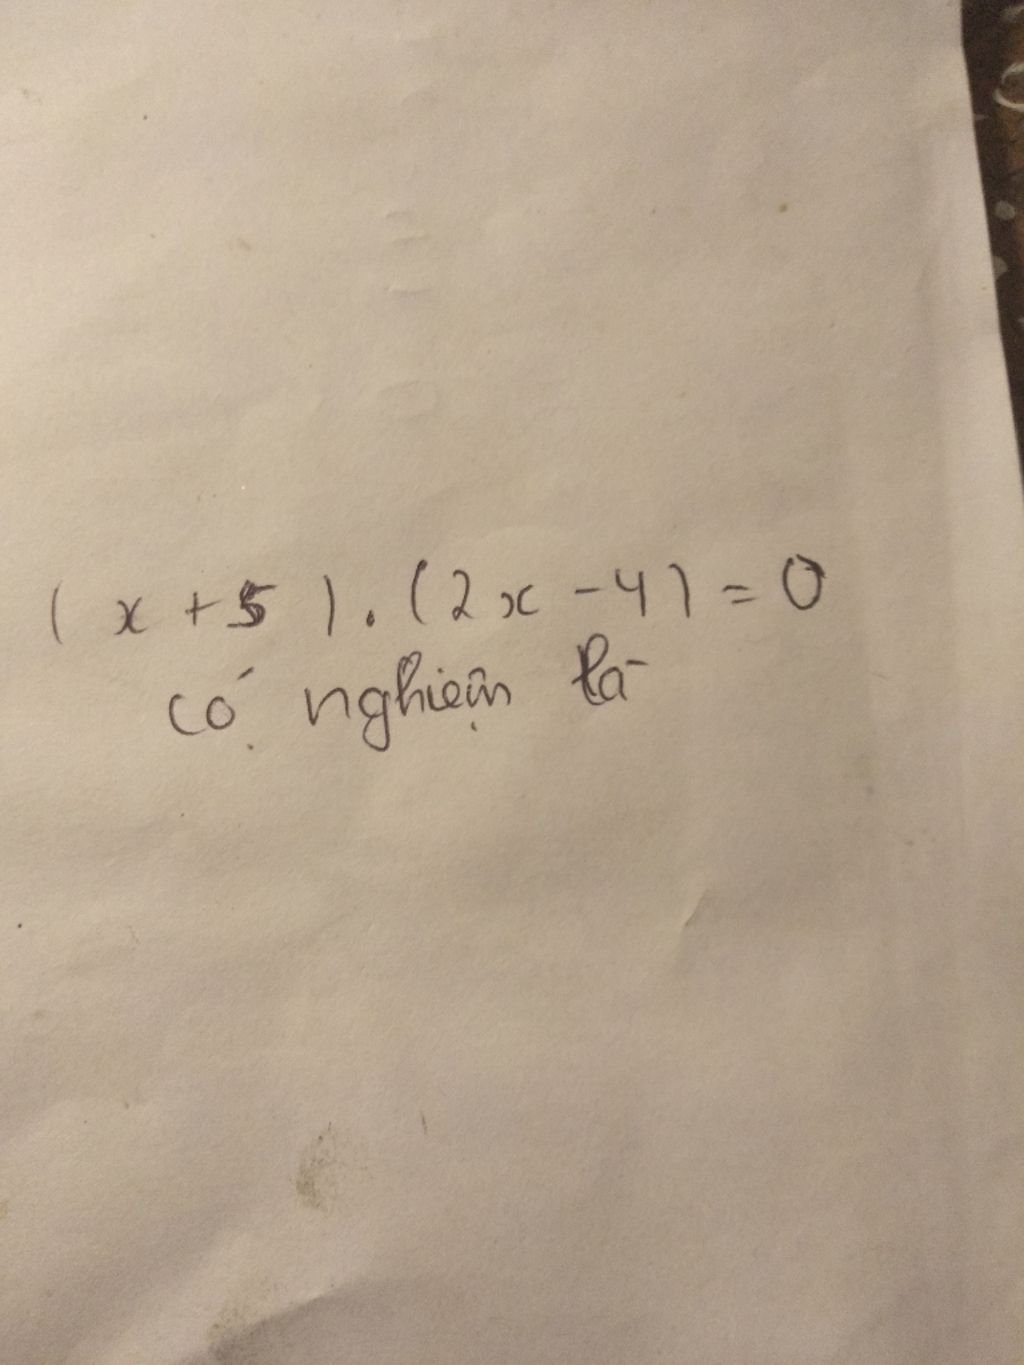 ( x + 5 ) . ( 2x - 4 ) = 0
có nghiệm là